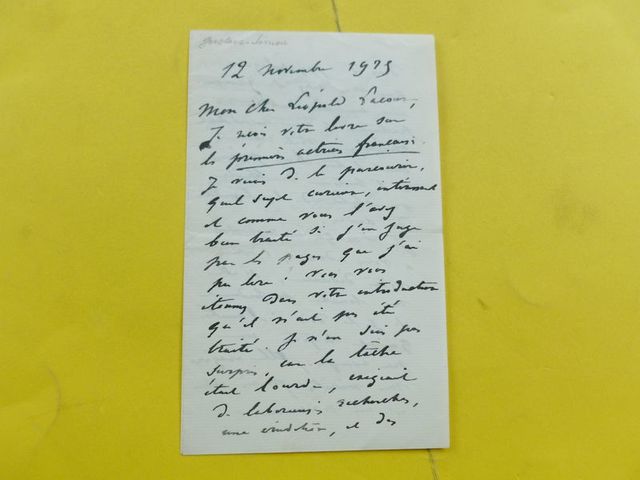 12 novembre 1925
Mon cher Léopold Lacour,
Je reçois votre livre sur
les premières actrices françaises.
Je viens de le parcourir,
quel sujet curieux, intéressant
et comme vous l'avez
bien traité si j'en juge
par les pages que j'ai
pu lire. Vous vous
étonnez dans votre introduction
qu'il n'ait pas été
traité. Je n'en suis pas
surpris, car la tâche
était lourde, exigeait
de laborieuses recherches,
une érudition, et des